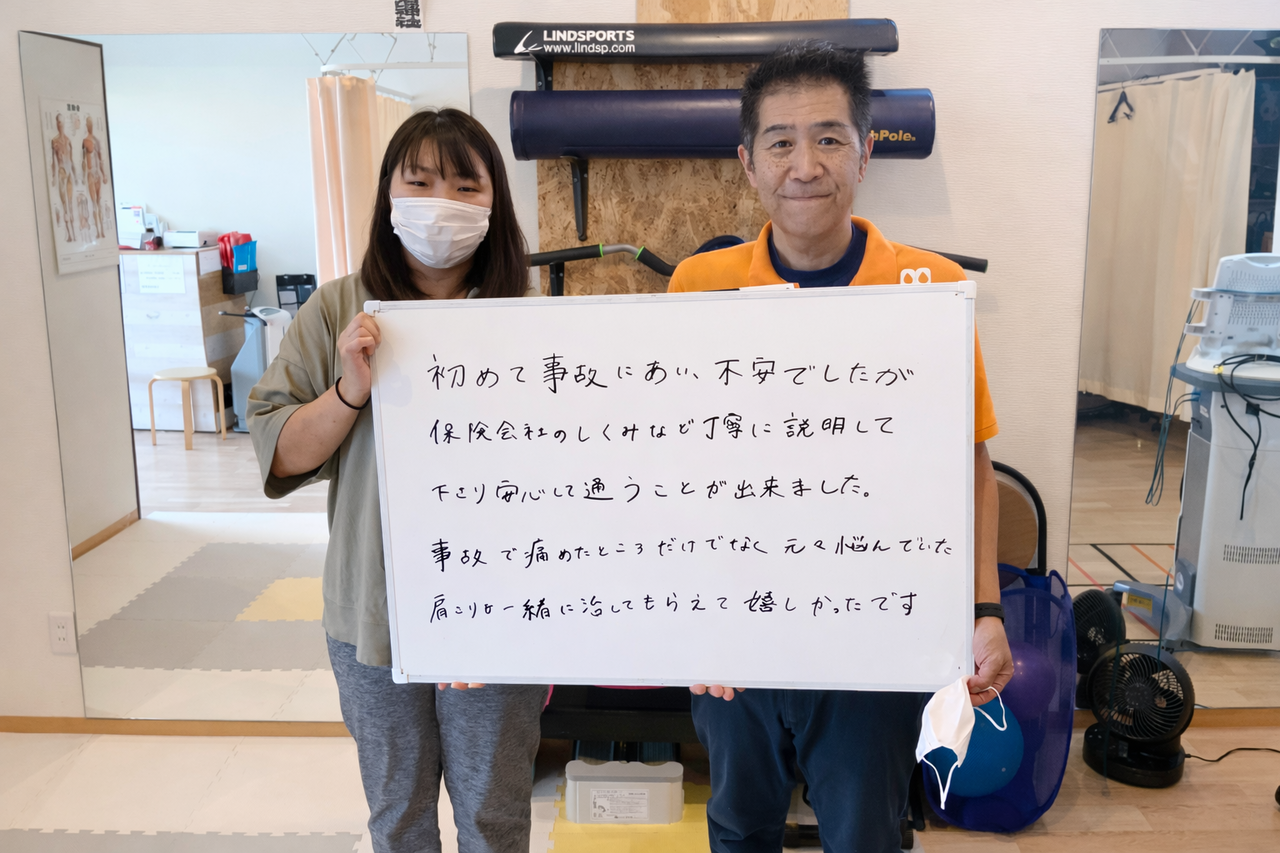 LINDSPORTS
www.lindsp.com
Pole
初めて事故にあい、不安でしたが
保険会社のしくみなど丁寧に説明して
下さり安心して通うことが出来ました。
事故で痛めたところだけでなく元々悩んでいた
肩こりも一緒に治してもらえて嬉しかったです